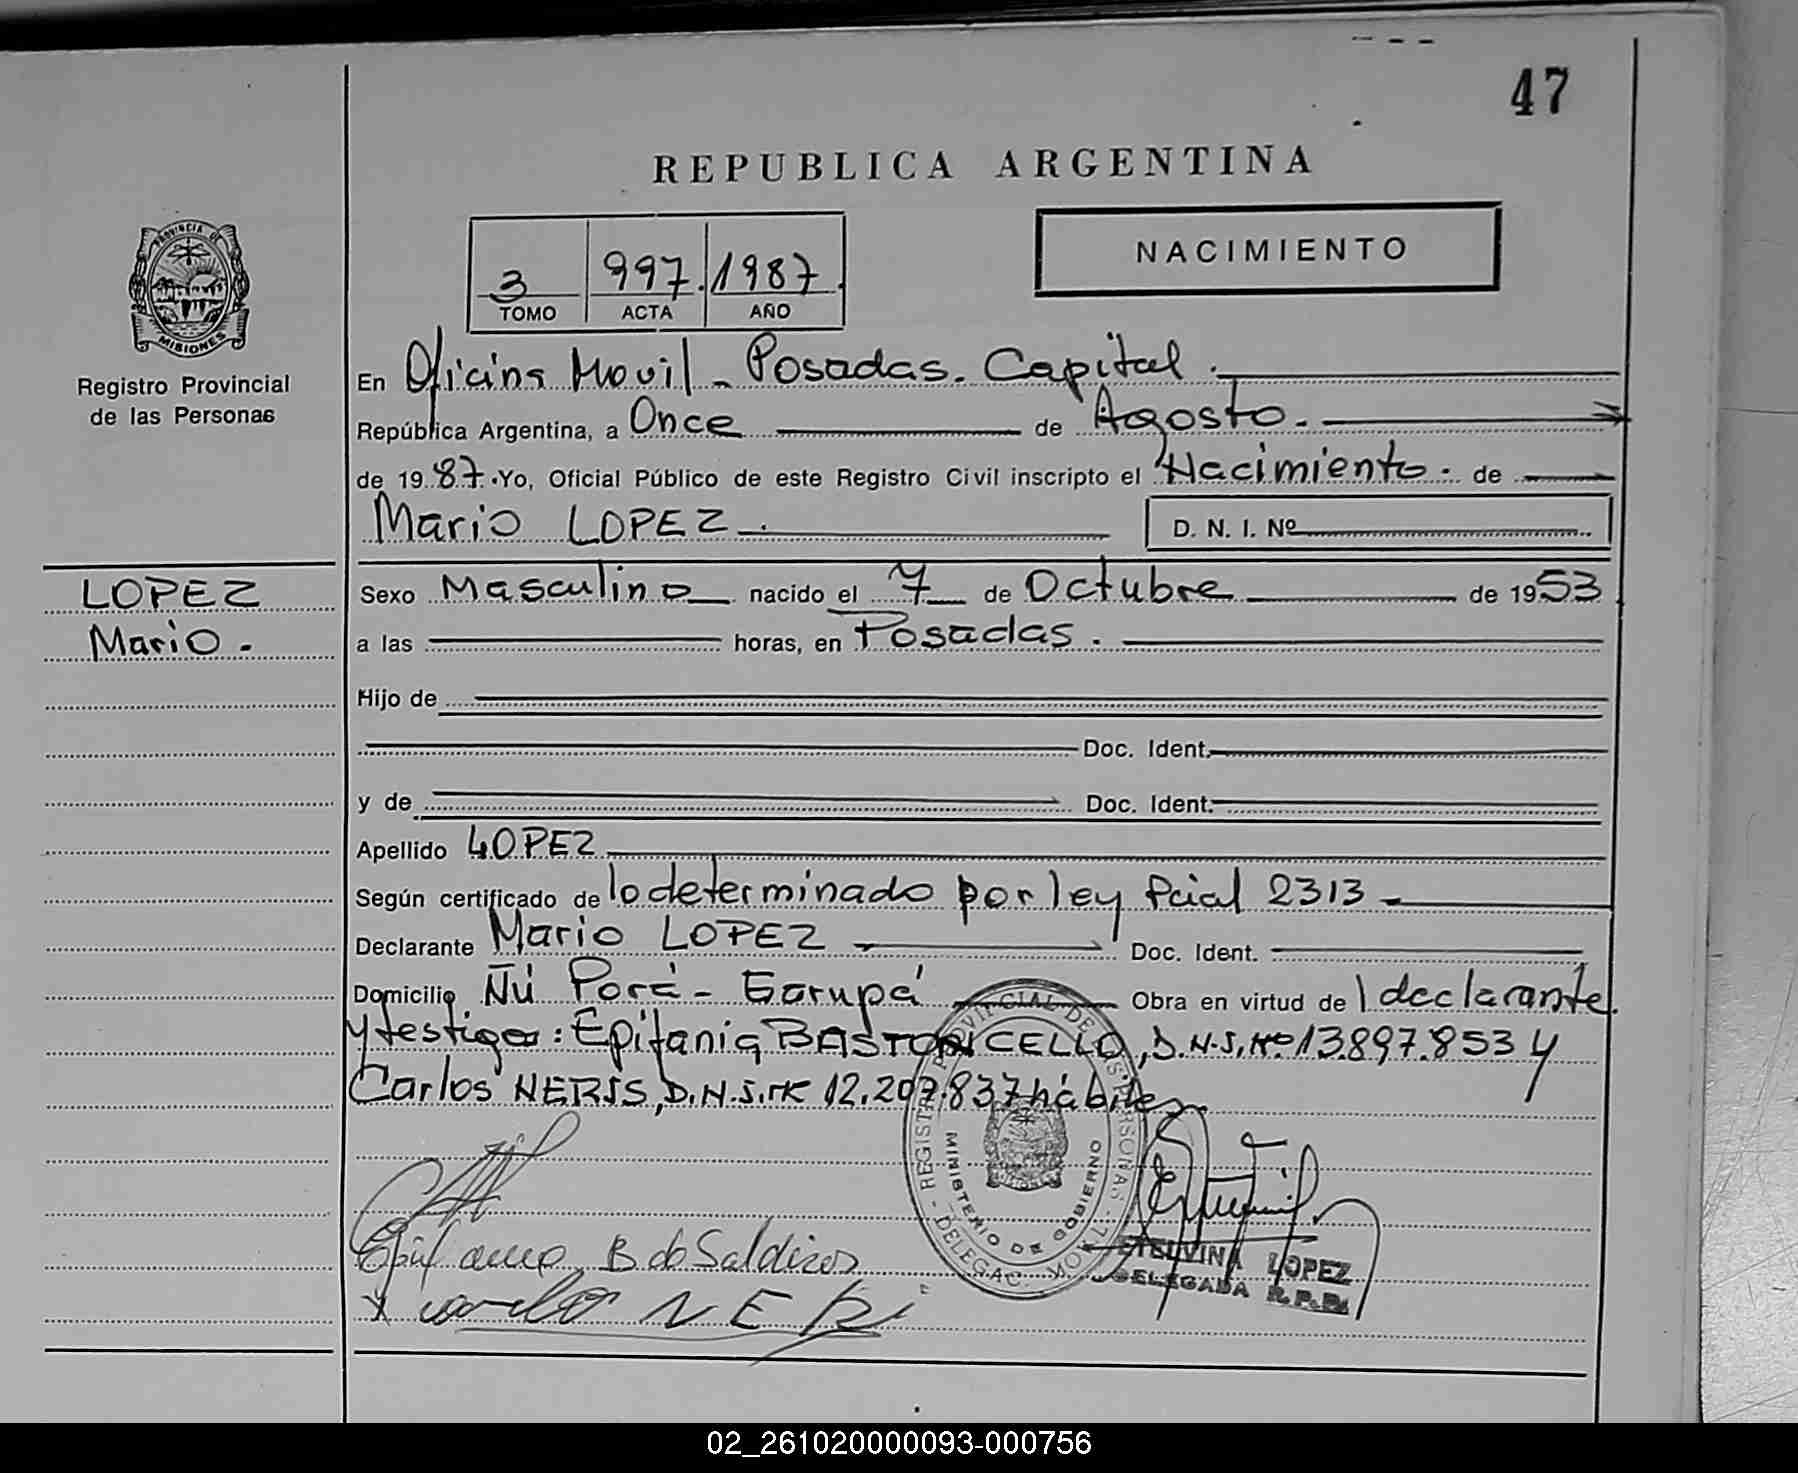 47
REPUBLICA ARGENTINA
PROVINCIA DE
MISIONES
Registro Provincial
de las Personas
3 997. 1987.
TOMO ACTA AÑO
NACIMIENTO
En Oficina Movil - Posadas. Capital.
República Argentina, a Once de Agosto.
de 1987. Yo, Oficial Público de este Registro Civil inscripto el Nacimiento. de
Mario LOPEZ. D. N. I. Nº
LOPEZ
Mario.
Sexo Masculino nacido el 7 de Octubre de 1953
a las horas, en Posadas.
Hijo de
Doc. Ident.
y de Doc. Ident.
Apellido LOPEZ
Según certificado de lo determinado por ley Pcial 2313
Declarante Mario LOPEZ Doc. Ident.
Domicilio Ñú Porá - Garupá Obra en virtud de l declarante
y testigos: Epifania BASTORICELLO, D.N.I.Nº 13.897.853 y
Carlos NERIS, D.N.I. 12.207.837 hábiles
REGISTRO PROVINCIAL DE LAS PERSONAS - DELEGAC. MOVIL -
MINISTERIO DE GOBIERNO
ETELVINA LOPEZ
DELEGADA R.P.P.
02_261020000093-000756